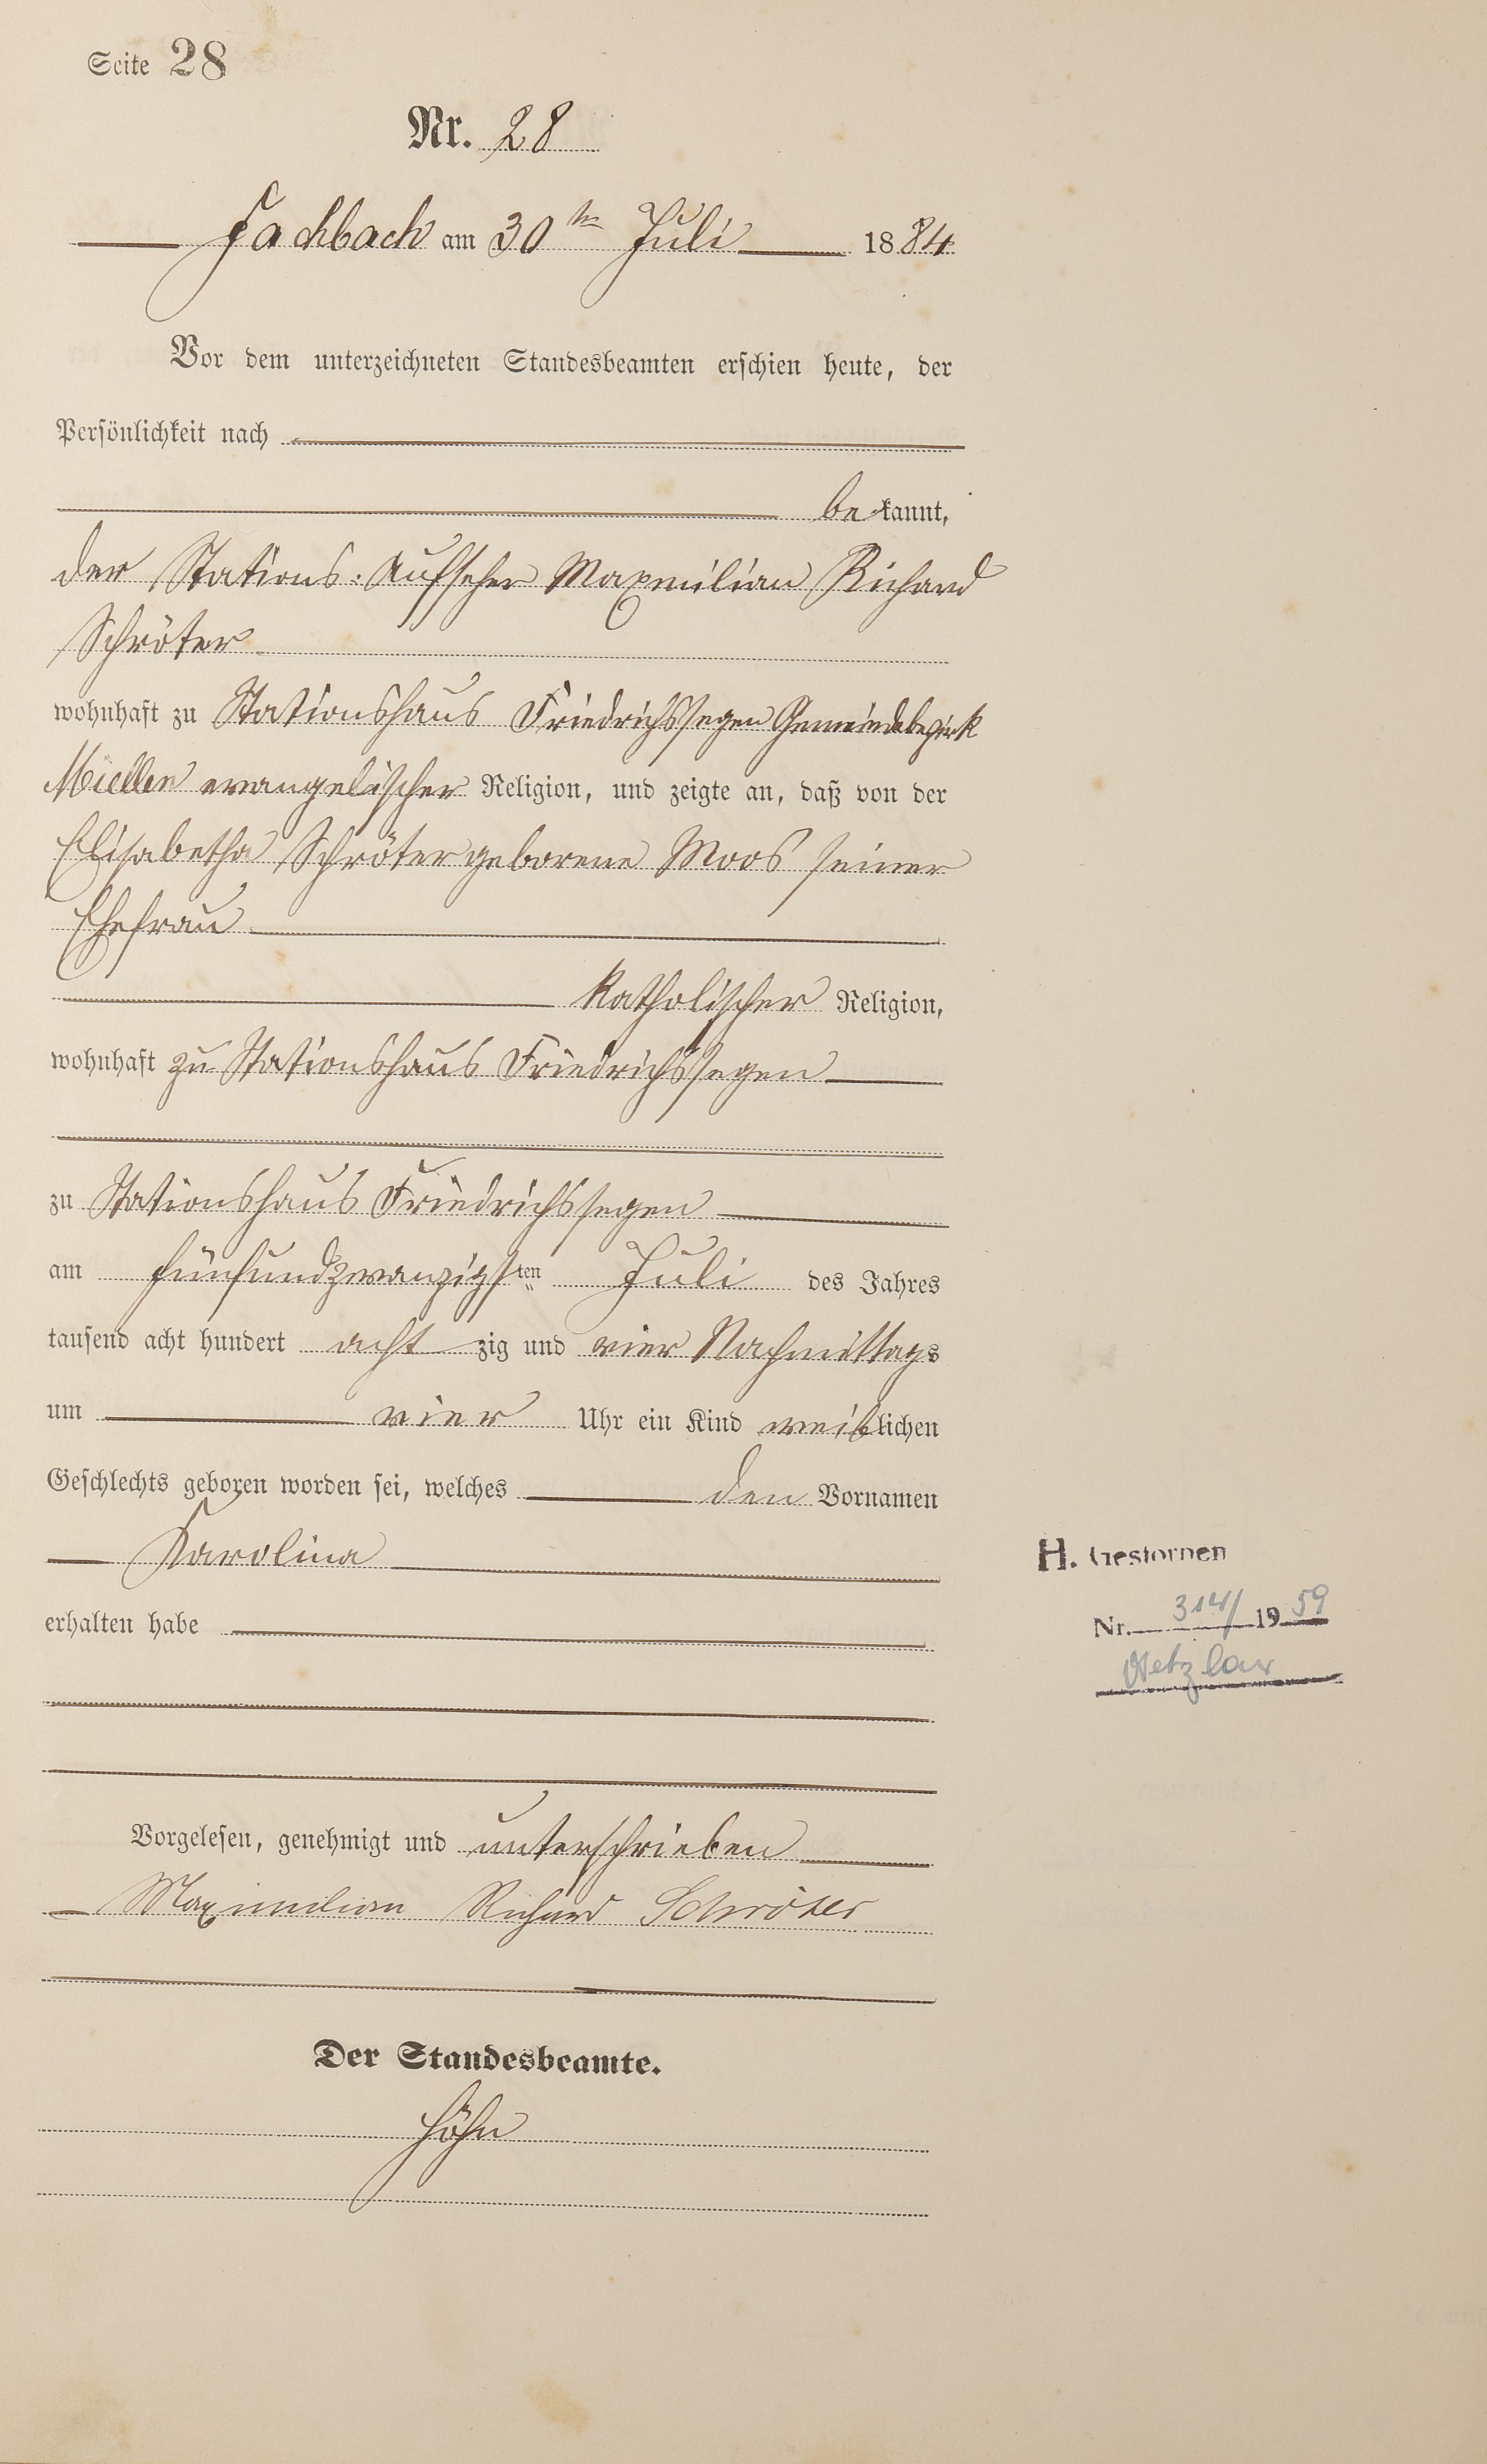 Seite 28
Nr. 28
Fachbach am 30ten Juli 1884
Vor dem unterzeichneten Standesbeamten erschien heute, der
Persönlichkeit nach
bekannt,
der Stations-Aufseher Maxmilian Richard
Schröter
wohnhaft zu Stationshaus Friedrichssegen Gemeindebezirk
Miellen evangelischer Religion, und zeigte an, daß von der
Elisabetha Schröter geborene Moos seiner
Ehefrau
katholischer Religion,
wohnhaft zu Stationshaus Friedrichssegen
zu Stationshaus Friedrichssegen
am fünfundzwanzigsten Juli des Jahres
tausend acht hundert achtzig und vier Nachmittags
um vier Uhr ein Kind weiblichen
Geschlechts geboren worden sei, welches den Vornamen
Karolina
erhalten habe
H. Gestorben
Nr. 314/1959
Wetzlar
Vorgelesen, genehmigt und unterschrieben
Maximilian Richard Schröter
Der Standesbeamte.
Höhn